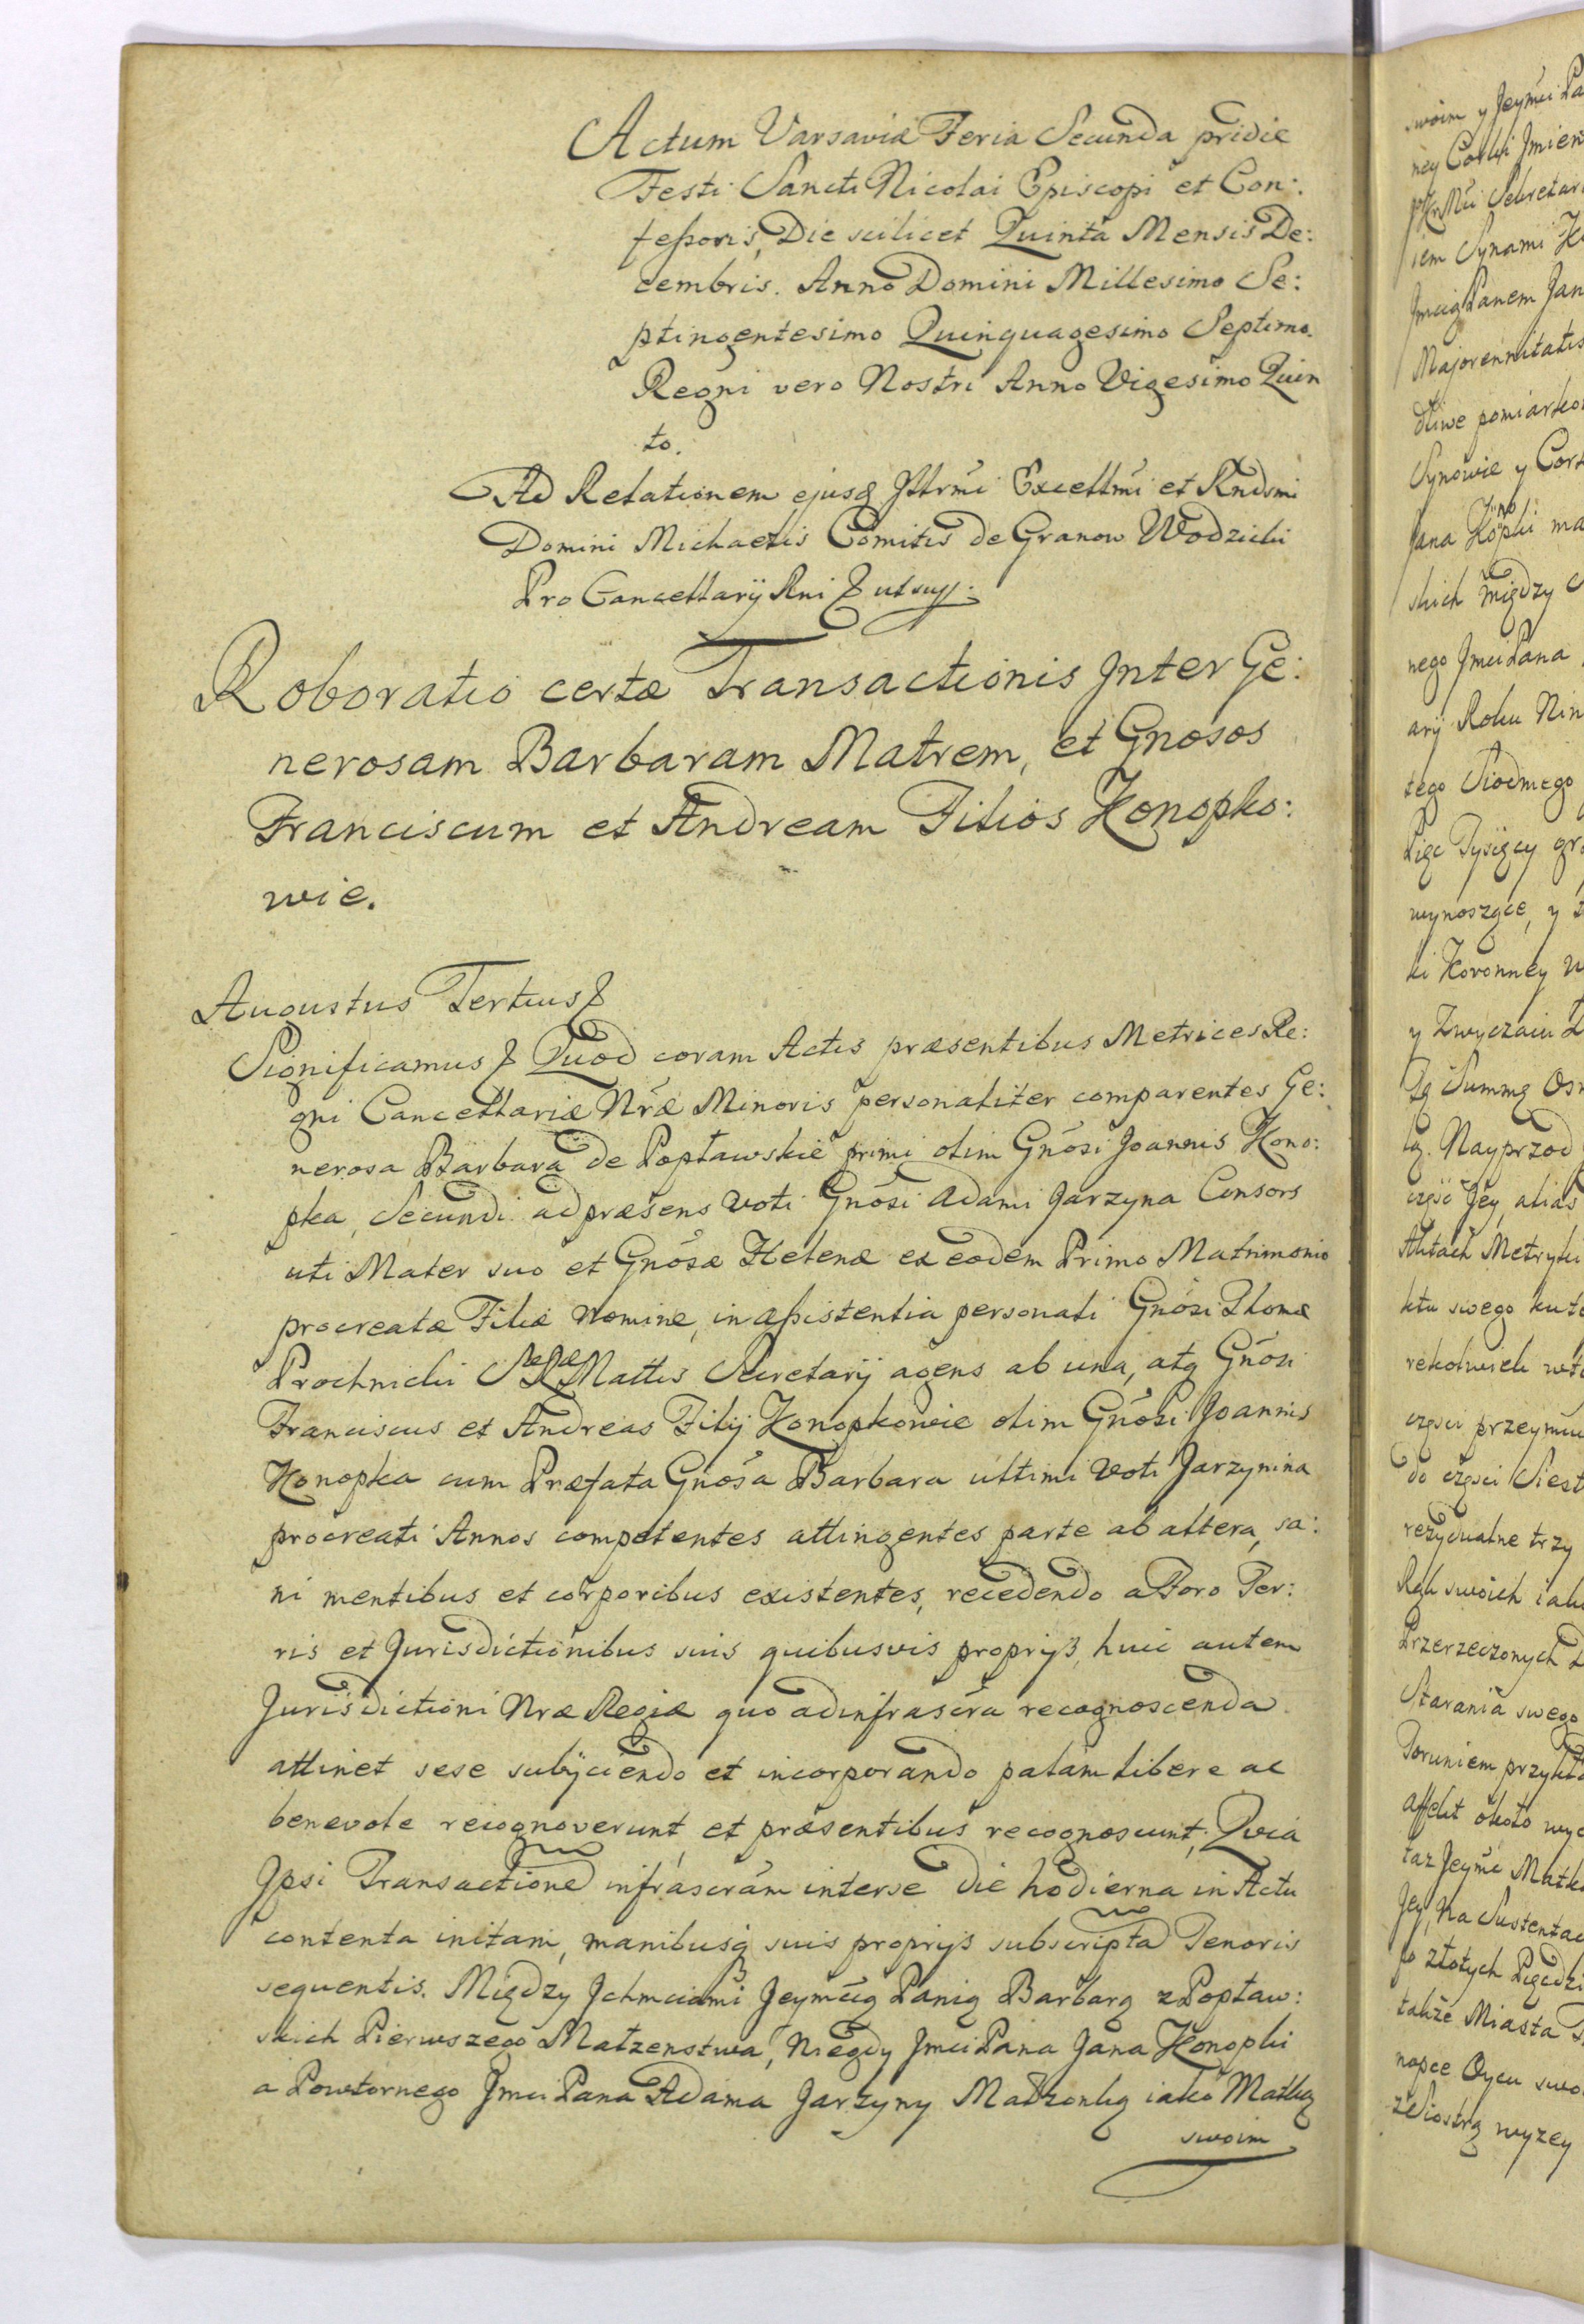 Actum Varsaviæ Feria Secunda pridie
Festi Sancti Nicolai Episcopi et Con:
feßoris, Die scilicet Quinta Mensis De:
cembris. Anno Domini Millesimo Se:
ptingentesimo Quinquagesimo Septimo.
Regni vero Nostri Anno Vigesimo Quin
to.
Ad Relationem ejusq Illrmi Excellmi et Rndsmi
Domini Michaelis Comitis de Granow Wodzicki
Pro Cancellarij Rni & ut sup.
Roboratio certæ Transactionis Inter Ge:
nerosam Barbaram Matrem, et Gnosos
Franciscum et Andream Filios Konopko:
wie.
Augustus Tertius &
Significamus & Quod coram Actis præsentibus Metrices Re:
gni Cancellariæ Nræ Minoris personaliter comparentes Ge:
nerosa Barbara de Popławskie primi olim Gnosi Joannis Kono:
pka, Secundi ad præsens voti Gnosi Adami Jarzyna Consors
uti Mater suo et Gnosæ Helenæ ex eodem Primo Matrimonio
procreatæ Filiæ Nomine, in aßistentia personali Gnosi Thomæ
Prochnicki S Ræ Mattis Secretarij agens ab una, atq Gnosi
Franciscus et Andreas Filij Konopkowie olim Gnosi Joannis
Konopka cum Præfata Gnosa Barbara ultimi voti Jarzynina
procreati Annos competentes attingentes parte ab altera, sa:
ni mentibus et corporibus existentes, recedendo a Foro Ter:
ris et Jurisdictionibus suis quibusvis proprijs, huic autem
Jurisdictioni Nræ Regiæ quo ad infrascra recognoscenda
attinet sese subijciendo et incorporando palam libere ac
benevole recognoverunt, et præsentibus recognoscunt, Quia
Ipsi Transactione infrascram inter se die hodierna in Actu
contenta initam, manibusq suis proprijs subscripta Tenoris
sequentis. Między Ichmciami Jeymcią Panią Barbarą z Popław:
skich Pierwszego Małzenstwa, Niegdy Jmci Pana Jana Konopki
a Powtornego Jmci Pana Adama Jarzyny Małzonką iako Matką
swoim
swoim y Jeymci Pa
Synowie y Cork
nego Jmci Pana
tego Siodmego
Pięc Tysięcy
wynoszące, y
ki Koronney w
y Zwyczaiu
Tą Summą
Nayprzod
częsc Jey, alias
Aktach Metryki
części przeymu
do części Siest
rezydualne trzy
Przerzeczonych
Starania swego
Toruniem
affekt około wyc
Jey, Na Sustentac
po złotych
także Miasta
nopce Oycu swo
z Siostrą wyzey